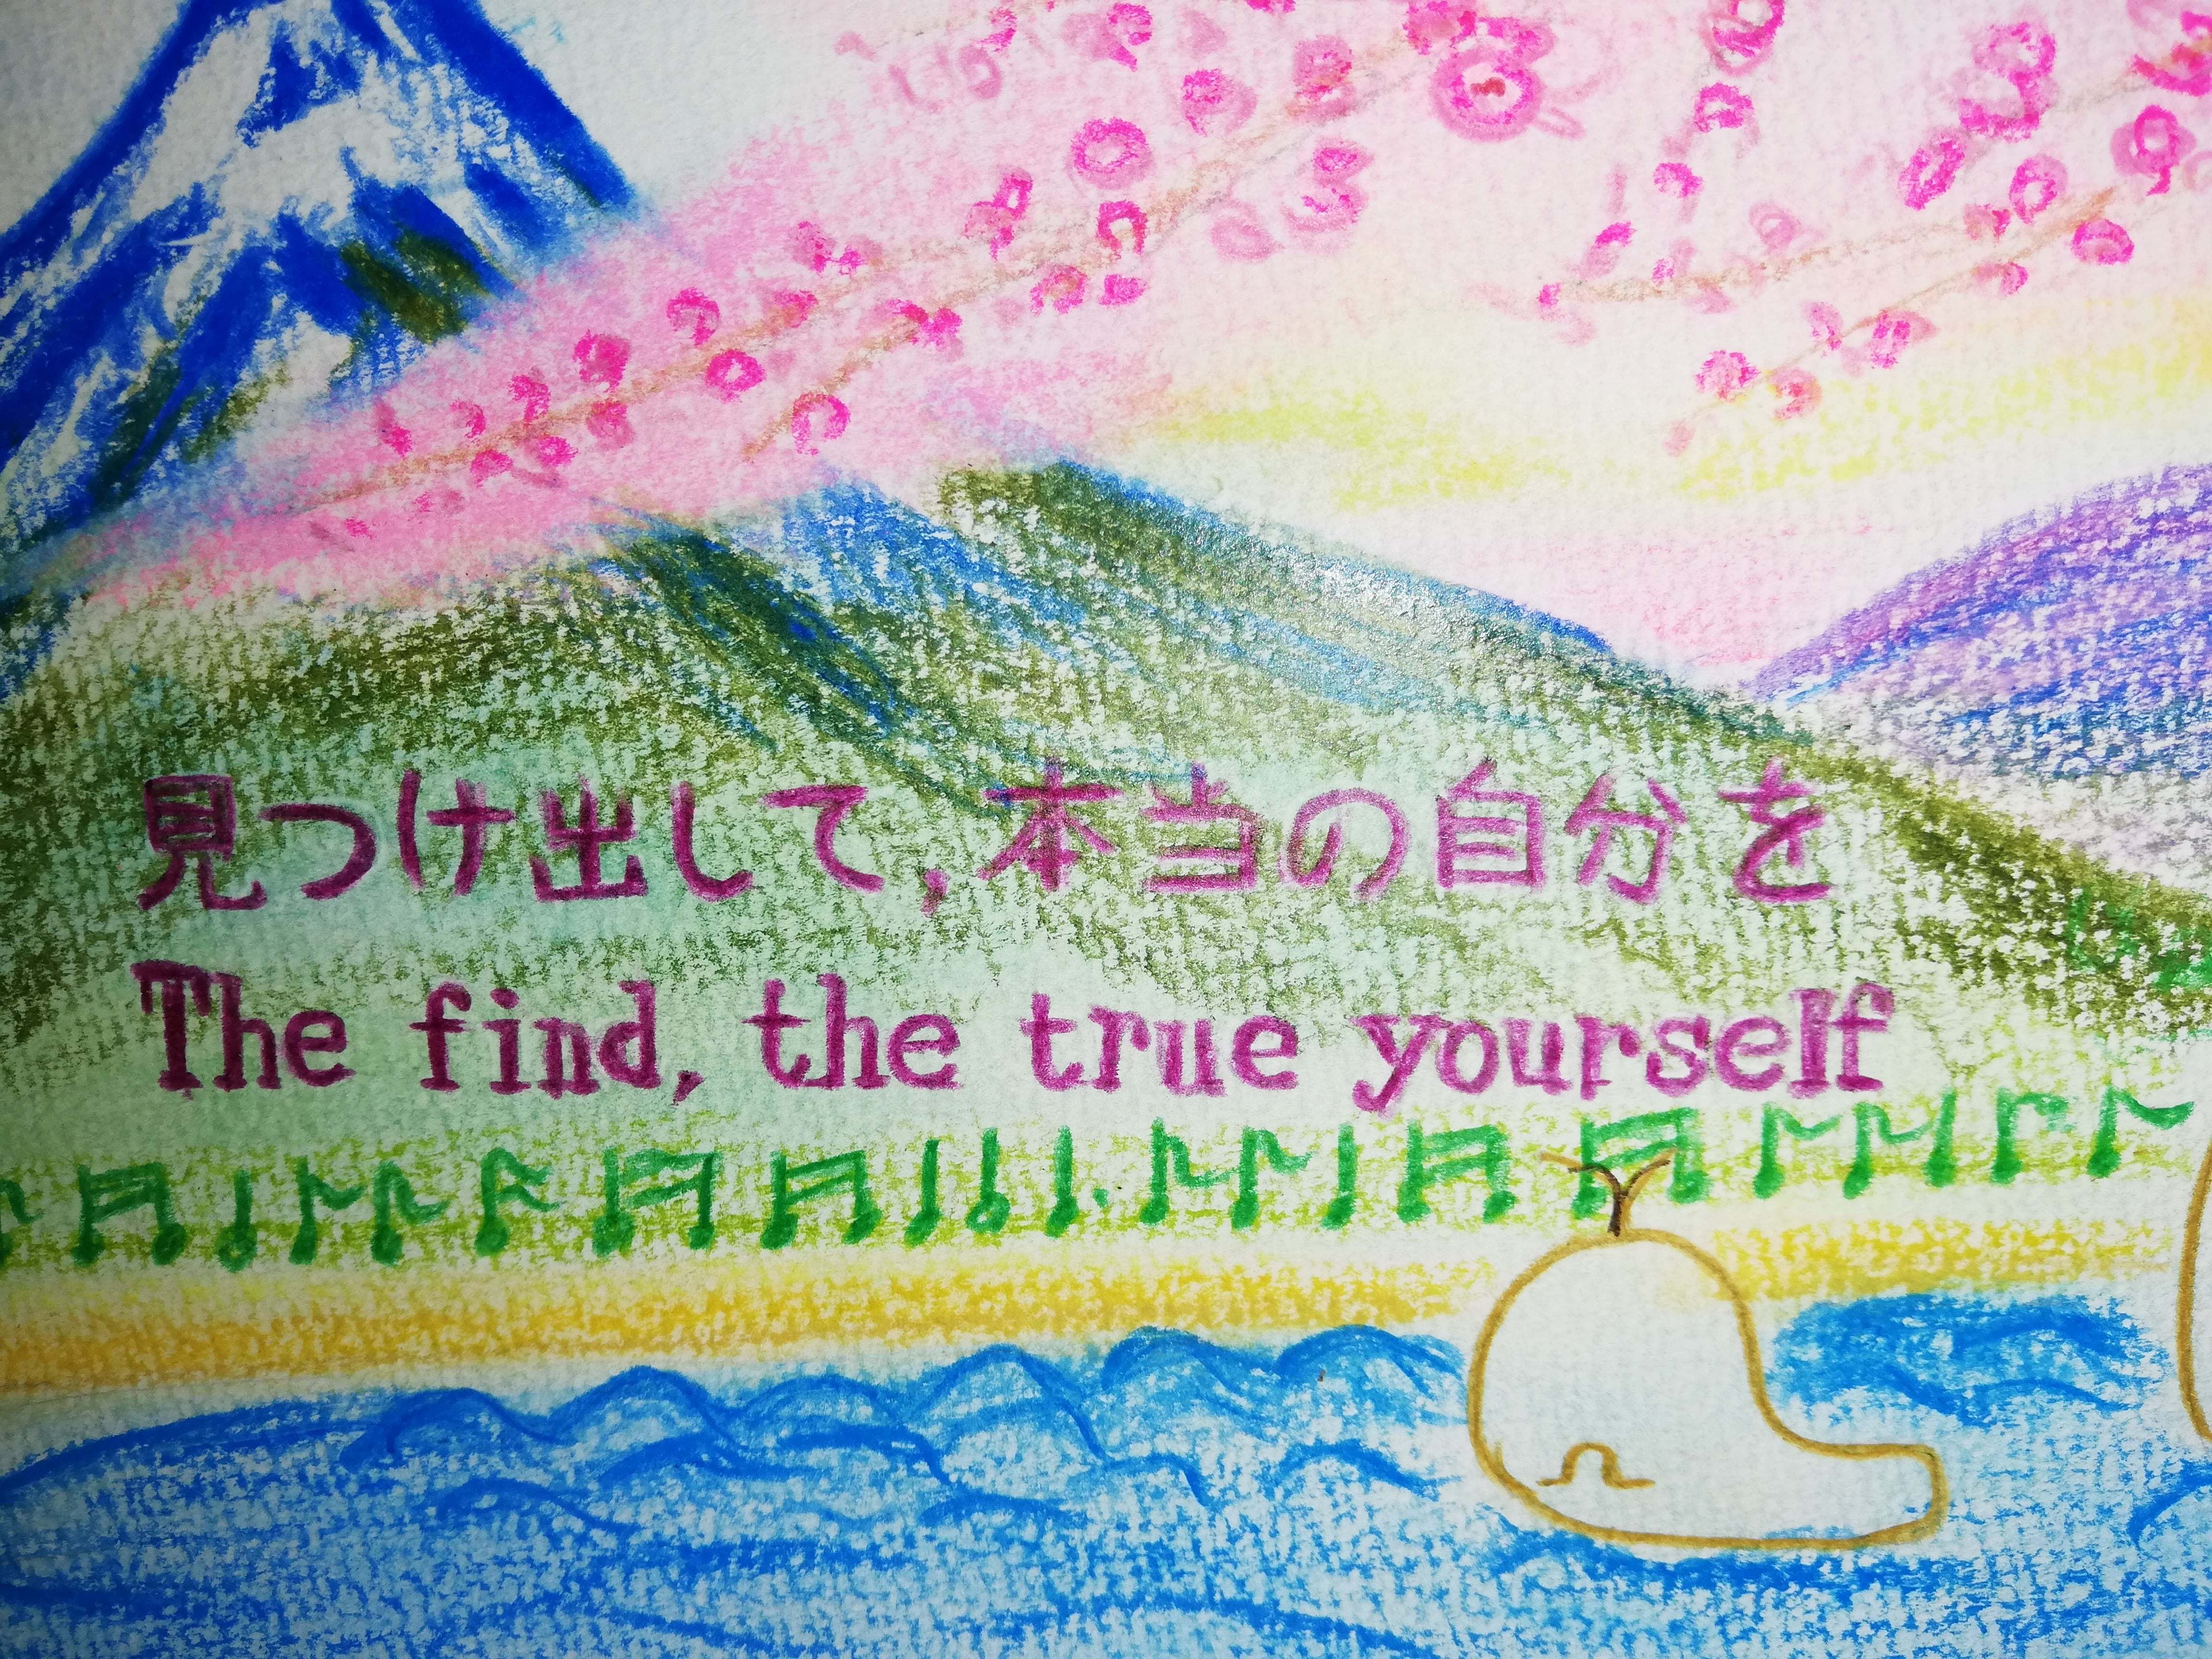 見つけ出して,本当の自分を
The find, the true yourself